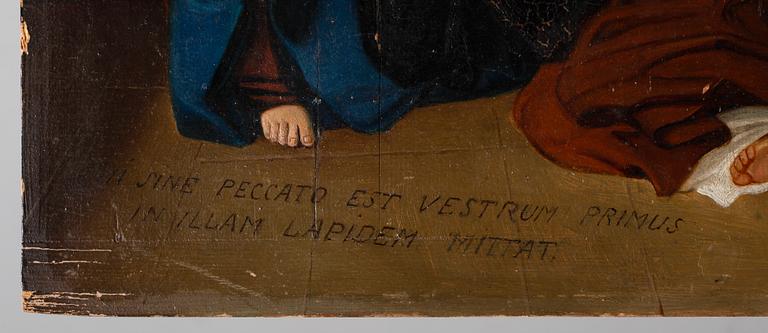 SINE PECCATO EST VESTRUM PRIMUS
IN ILLAM LAPIDEM MITTAT.